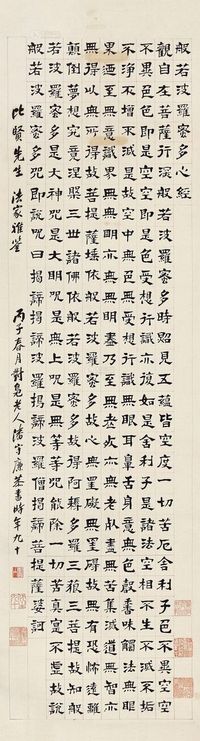 般若波羅密多心經
觀自在菩薩行深般若波羅密多時照見五蘊皆空度一切苦厄舍利子色不異空空
不異色色即是空空即是色受想行識亦復如是舍利子是諸法空相不生不滅不垢
不淨不增不減是故空中無色無受想行識無眼耳鼻舌身意無色聲香味觸法無眼
界迺至無意識界無無明亦無無明盡乃至無老死亦無老死盡無苦集滅道無智亦
無得以無所得故菩提薩埵依般若波羅密多故心無罣礙無罣礙故無有恐怖遠離
顛倒夢想究竟涅槃三世諸佛依般若波羅密多故得阿耨多羅三藐三菩提故知般
若波羅密多是大神咒是大明咒是無上咒是無等等咒能除一切苦真實不虛故說
般若波羅密多咒即說咒曰揭諦揭諦波羅揭諦波羅僧揭諦菩提薩婆訶
比賢先生 法家雅鑒
丙子春月對鳧老人潘守廉恭書時年九十